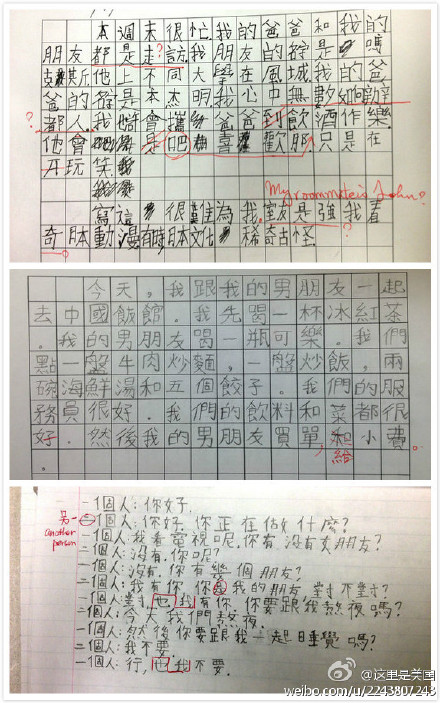 本週末很忙我的爸爸和我的
朋友都是走?訪我朋友的名是
他上不同大學在風城我的爸
爸的名是本杰明我心中無數如何辦
?
都人我 會 爸爸到飲酒作樂
他會 是吧 喜歡那只是在
牙玩笑
My roommate is John?
寫這 很難為我室友是強我看
?
奇日本動漫有時日本文化 稀奇古怪
今天,我跟我的男朋友一起
去中國飯館.我先喝一杯冰紅茶
.我的男朋友喝一瓶可樂.我們
點一盤牛肉炒麵,一盤炒飯,兩
碗海鮮湯和五個餃子.我們的服
務員很好.我們的飲料和菜都很
好.然後我的男朋友買單,和小費
給
.
一個人:你好.
另一 another person
二個人:你好.你正在做什麼?
一個人:我看電視呢.你有沒有女朋友?
二個人:沒有.你呢?
一個人:沒有.你有幾個朋友?
二個人:我有你.你是我的朋友,對不對?
一個人:對,也我有你.你要跟我熬夜嗎?
二個人:今天我們熬夜.
一個人:然後你要跟我一起睡覺嗎?
二個人:我不要.
一個人:行,也我不要.
@这里是美国
weibo.com/u/2243807243